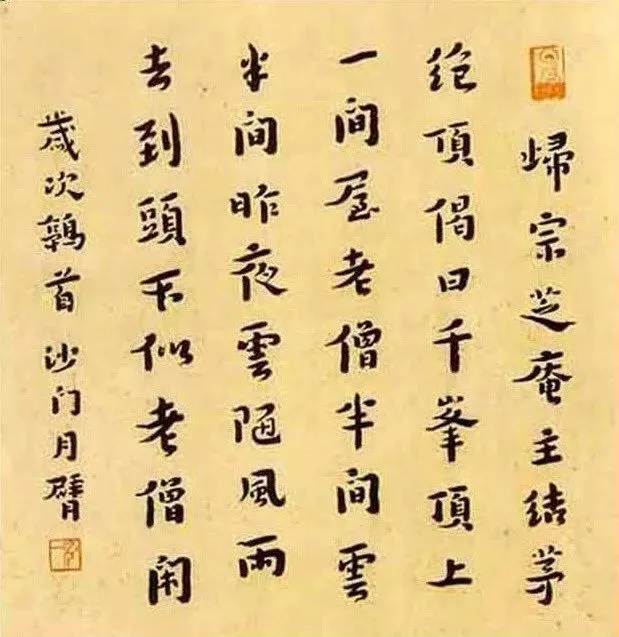 歸宗芝庵主結茅
絶頂偈曰千峯頂上
一間屋老僧半間雲
半間昨夜雲隨風雨
去到頭不似老僧閑
歲次鶉首沙门月臂